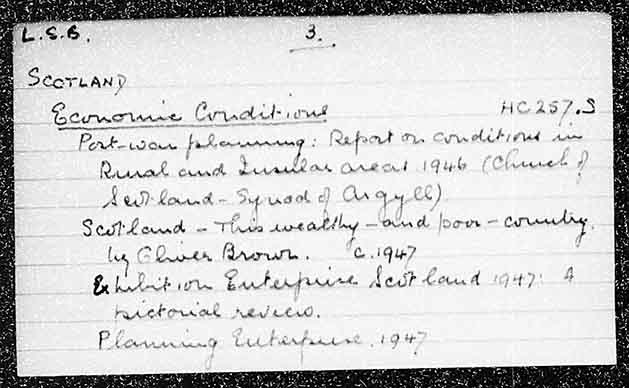 L.S.B. 3.
SCOTLAND
Economic Conditions HC257.S
Post-war planning: Report on conditions in
Rural and Insular areas 1946 (Church of
Scotland - Synod of Argyll)
Scotland - This wealthy - and poor - country.
by Oliver Brown. c.1947
Exhibition Enterprise Scotland 1947: A
pictorial review.
Planning Enterprise. 1947